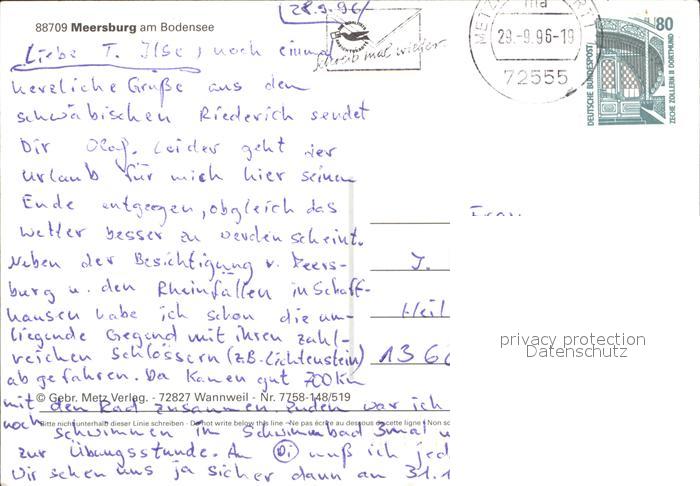 28.9.96
88709 Meersburg am Bodensee
Schreib mal wieder
METZ
29.-9.96-19
72555
80
DEUTSCHE BUNDESPOST
ZECHE ZOLLERN II DORTMUND
Liebe T. Ilse, noch einmal
herzliche Grüße aus dem
schwäbischen Riederich sendet
Dir Olaf. Leider geht der
Urlaub für mich hier seinem
Ende entgegen, obgleich das
Wetter besser zu werden scheint.
Neben der Besichtigung v. Meers-
burg u. den Rheinfällen in Schaff-
hausen habe ich schon die um-
liegende Gegend mit ihren zahl-
reichen Schlössern (z.B. Lichtenstein)
abgefahren. Da kamen gut 700 km
mit dem Rad zusammen. Zudem war ich
noch schwimmen im Schwimmbad 3mal u
zur Übungsstunde. Am Di muß ich jed
Wir sehen uns ja sicher dann am 31.1
Frau
J.
Heil
1360
© Gebr. Metz Verlag. - 72827 Wannweil - Nr. 7758-148/519
Bitte nicht unterhalb dieser Linie schreiben - Do not write below this line - Ne pas écrire au dessous de cette ligne - Non sc
privacy protection
Datenschutz